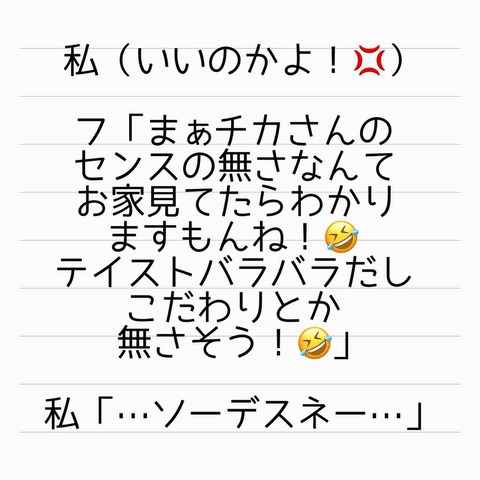 私（いいのかよ！💢）
フ「まぁチカさんの
センスの無さなんて
お家見てたらわかり
ますもんね！🤣
テイストバラバラだし
こだわりとか
無さそう！🤣」
私「…ソーデスネー…」